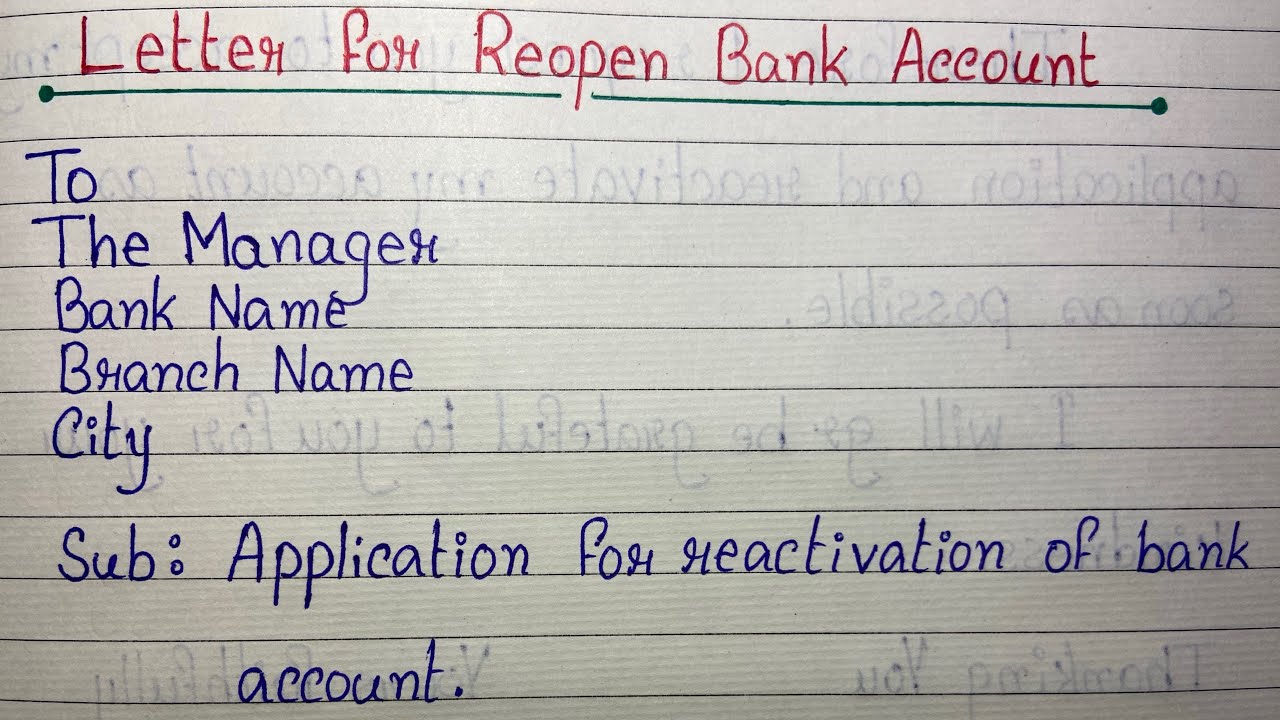 Letter for Reopen Bank Account
To
The Manager
Bank Name
Branch Name
City
Sub: Application for reactivation of bank
account.